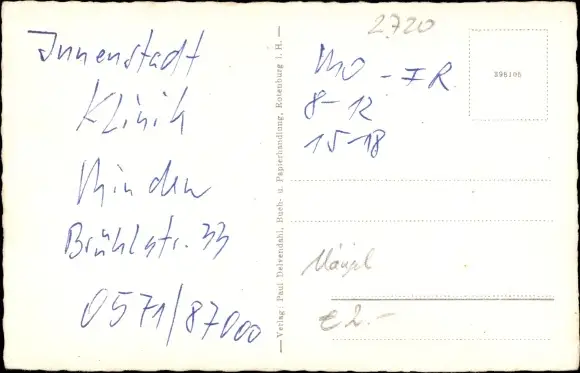 Innenstadt
Klinik
Minden
Brühlstr. 33
0571/87000
Verlag: Paul Delvendahl, Buch- u. Papierhandlung, Rotenburg i. H.
2720
Mo - FR
8-12
15-18
396106
Mängel
€ 2.-